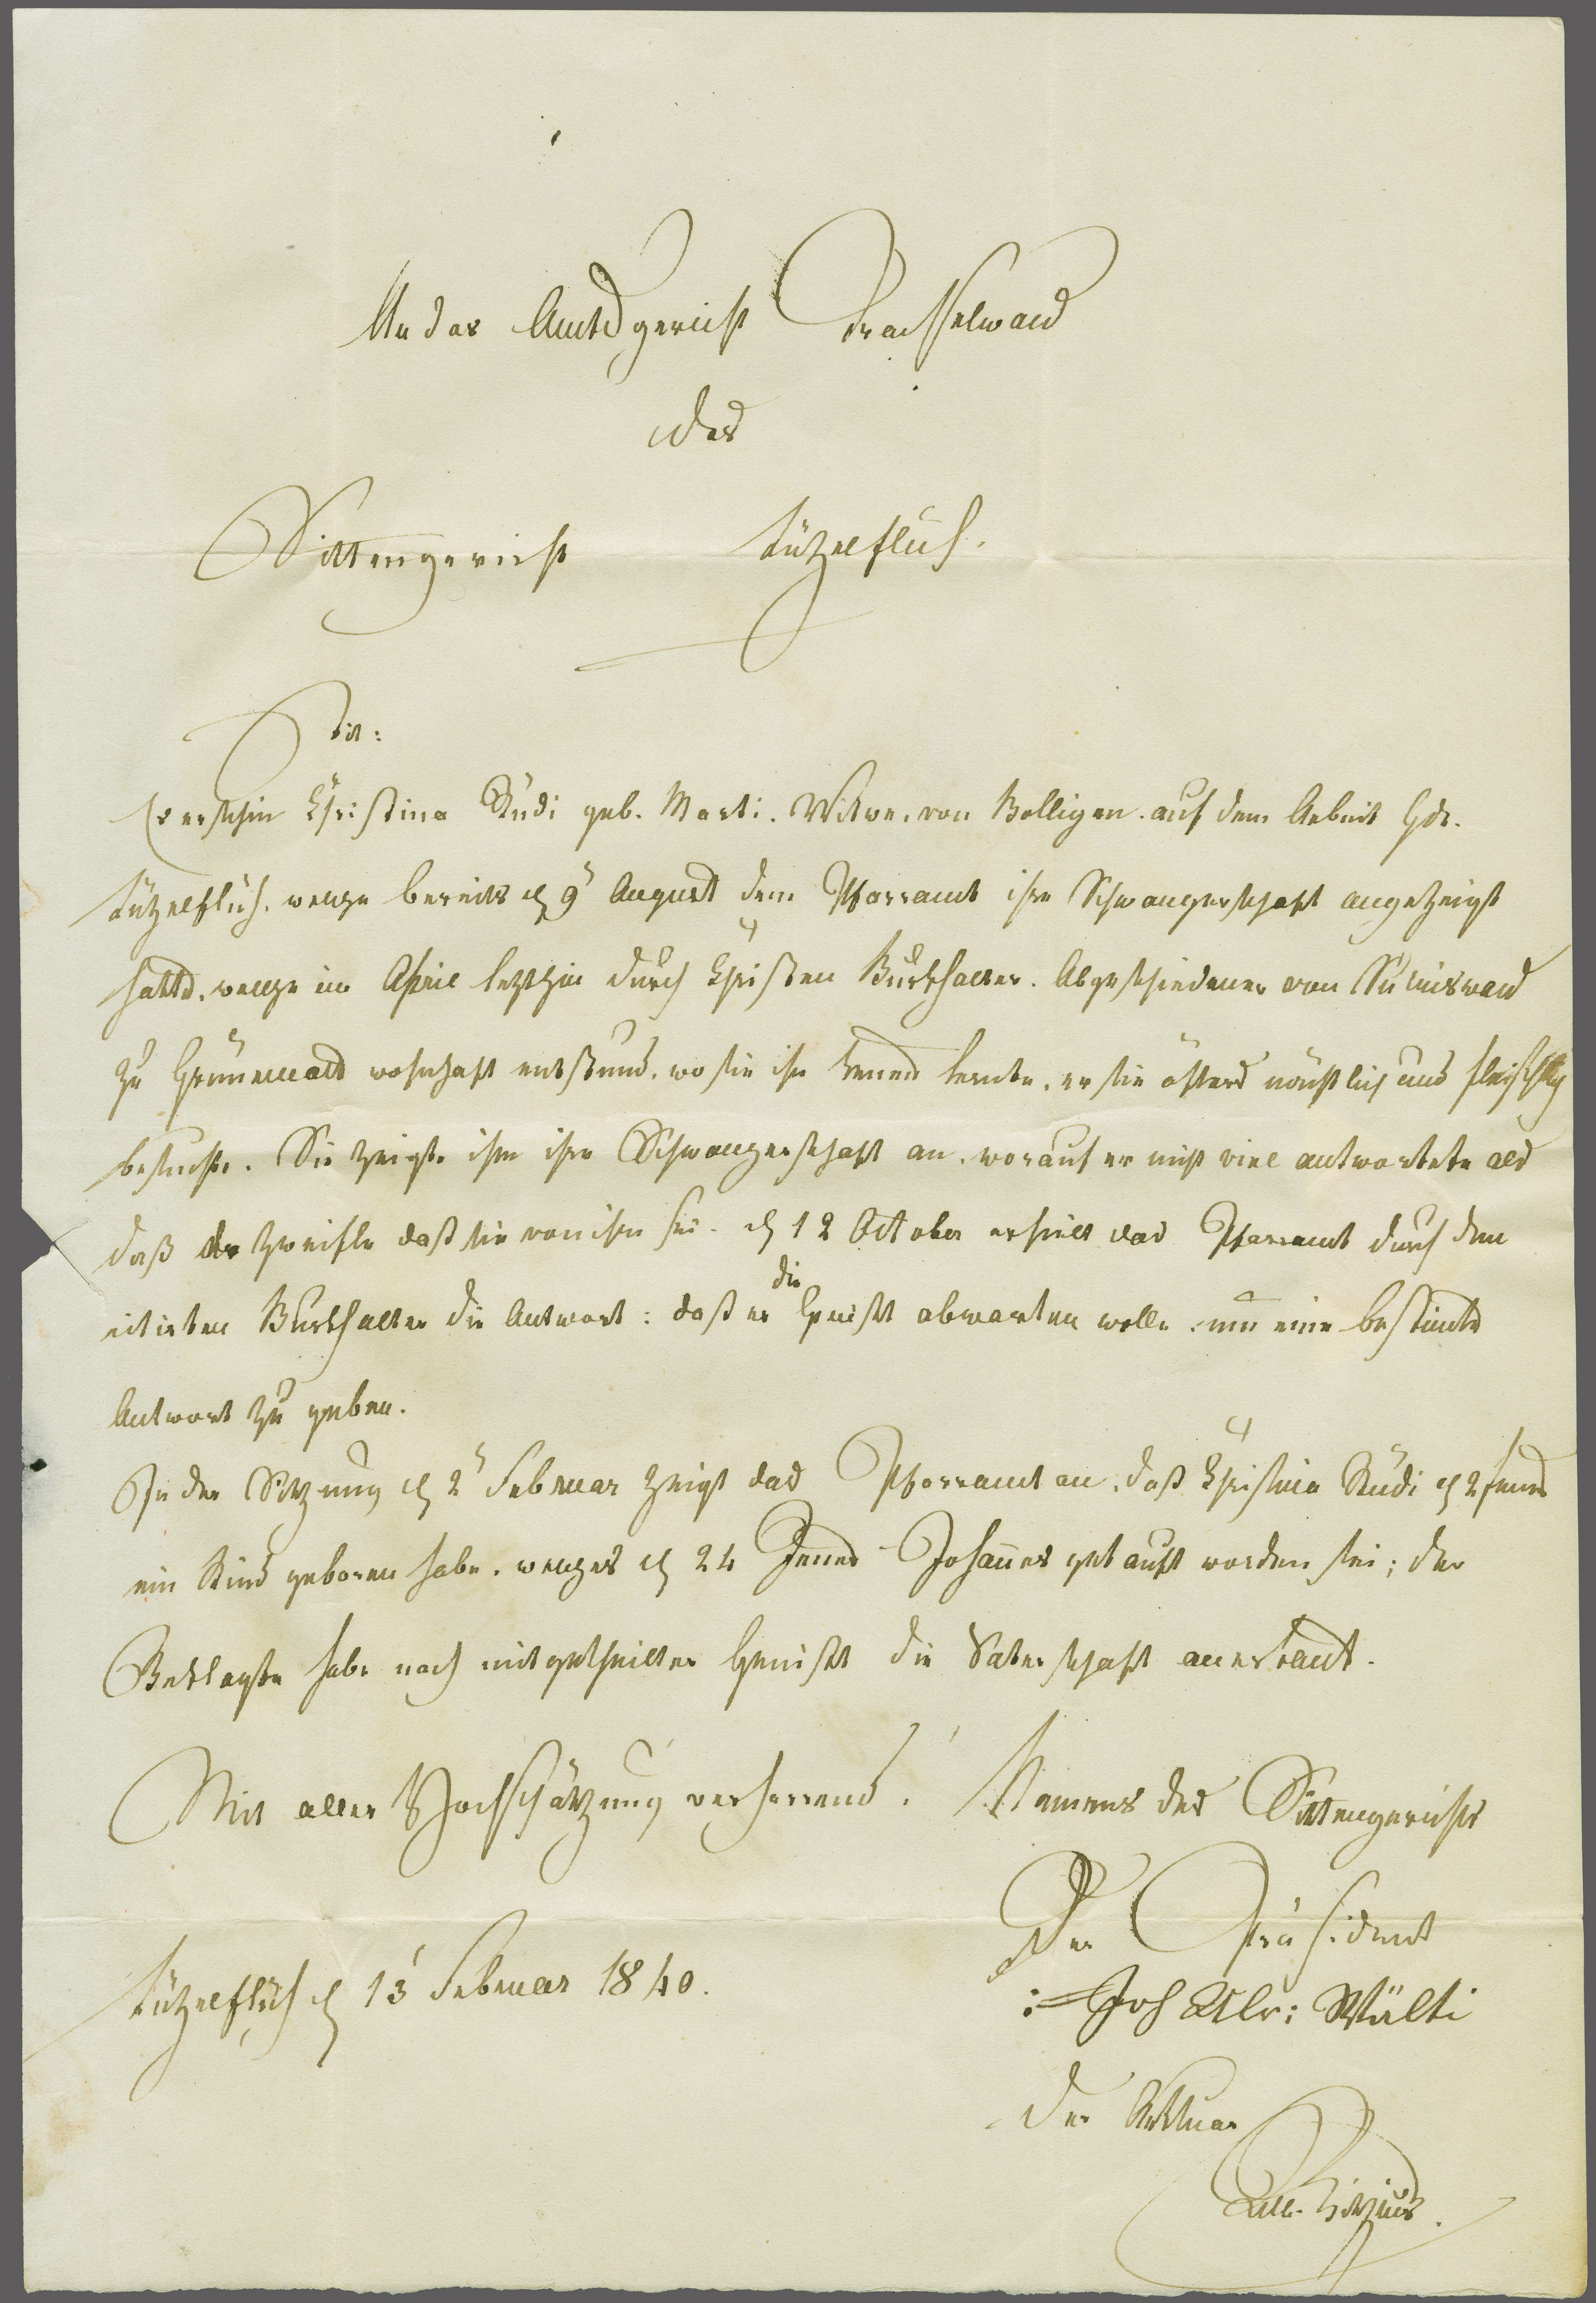 An das Amtsgericht Trachselwald
das
Sittengericht Lützelflüh.
Tit:
Es erschin Christina Rüdi geb. Marti. Witwe. von Bolligen. auf dem Gde.
Lützelflüh. welche bereits d 9t August dem Pfarramt ihre Schwangerschaft angezeigt
hatte. welche im Aprill letzthin durch Christen Burkhalter. Abgeschiedener von Sumiswald
zu Grünenmatt wohnhaft entstund. wo sie ihn kennen lernte. er sie öfters nächtlich und fleischlich
besuchte. Sie zeigte ihm ihre Schwangerschaft an. worauf er nicht viel antwortete als
daß er zweifle daß sie von ihm sei. d 12 October erhielt das Pfarramt durch den
citirten Burkhalter die Antwort: daß er die Geniszt abwarten wolle. um eine bestimte
Antwort zu geben.
In der Sitzung d 2t Februar zeigt das Pfarramt an. daß Christina Rüdi d 2 Jenner
ein Kind geboren habe. welches d 24 Jenner Johannes getauft worden sei; der
Beklagte habe nach mitgetheilter Geniszt die Vaterschaft anerkannt.
Mit aller Hochschätzung verharrend! Namens des Sittengerichts
Der Präsident
Lützelflüh d 13 Februar 1840.
Joh Ulr: Wälti
Der Aktuar
Alb. Bitzius.